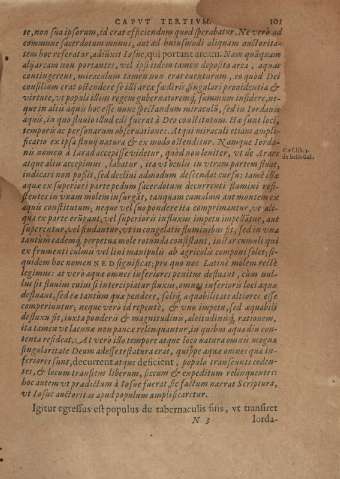 CAPUT TERTIUM. 101
te, non sua ipsorum, id erat efficiendum quod sperabatur. Ne verò ad
commune sacerdotum munus, aut ad huiusmodi aliquam auctoritatem
hoc referatur, adiunxit Iosue, qui portant arcam. Nam quanquam
aliàs arcam non portantes, vel ipsi etiam tamen deposita arca, aquas
contingerent, miraculum tamen non erat euenturum, eo quòd Dei
consilium erat ostendere se illi arcæ suæ diuinæ singulari prouidentia &
virtute, vt populi illius regem gubernatoremq; summum insidere, neque
in alijs aquis hoc esse nunc spectandum miraculū, sed in Iordanis
aquis, in quo fluuio illud edi fuerat à Deo constitutum.
tempori ac personarum obseruatione. Atqui miraculi etiam amplificatio
ex ipsa fluuij natura & ex modo ostenditur. Namque Iordanis
nomen à Iarad accepisse videtur, quod non leniter,
atque aliò accepimus, labatur, ita vt
indicari non possit, sed decliui admodum descendat cursu: tamē
aquæ ex superiori parte pedum sacerdotum decurrenti flumini resistentes
in vnam molem insurgūt, tanquam cumulus aut montem ex
aquis constitutum, neque vel suo pondere ita comprimantur, vt aliqua
ex parte erūpant, vel superioris influxus impetu impellātur, aut
superentur, vel fundantur, vt in congelatis fluminibus fit, sed in vna
tantum eademq; perpetua mole rotunda consistant, instar cumuli qui
ex frumenti culmis vel lini manipulis ab agricola componi solet, siquidem
hoc nomen נד significat, pro quo nos Latinè molem
legimus: at verò aquæ omnes inferiores penitus defluant, cùm nullus
sit fluuius cuius si intercipiatur fluxus, omnes inferioris loci aquæ
defluant, sed eæ tantùm quæ pendere, solíq; æquabilitate altiores esse
comperiuntur; neque verò id repentè, & vno impetu, sed æquabili
defluxu fit, iuxta ponderis & magnitudinis, altitudinisq; rationem,
ita tamen vt lacunæ non paucæ relinquantur, in quibus aqua diu contenta
resideat. At verò illo tempore atque loco natura omnis magna
singularitate Deum adesse testatura erat, quippe aquæ omnes quæ inferiores
sunt, decurrent atque deficient, populo transeunti cedentes,
& locum transitus liberum, siccum & expeditum relinquentes:
hoc autem vt prædictum à Iosue fuerat, sic factum narrat Scriptura,
vt Iosue auctoritas apud populum amplificaretur.
Igitur egressus est populus de tabernaculis suis, vt transiret
N 3 Iorda-